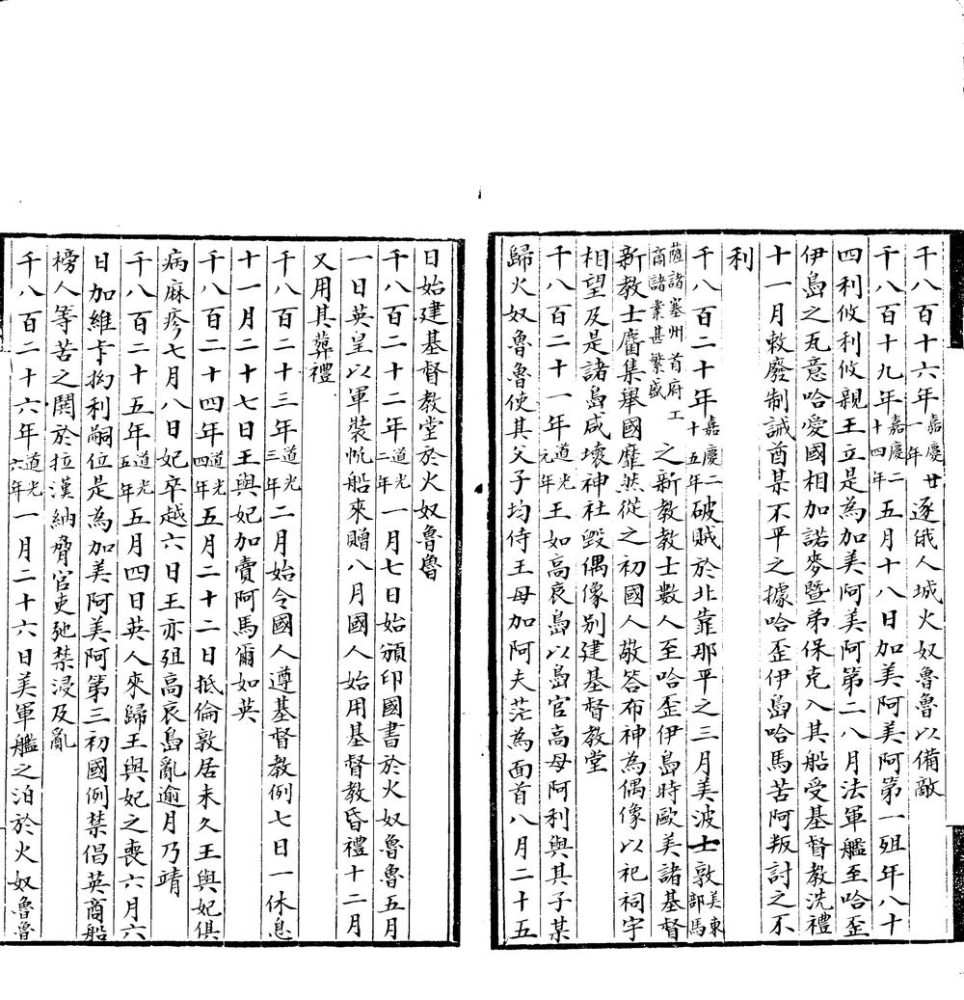 千八百十六年嘉慶廿一年逐俄人城火奴魯魯以備敵
千八百十九年嘉慶二十四年五月十八日加美阿美阿第一殂年八十
四利攸利攸親王立是為加美阿美阿第二八月法軍艦至哈歪
伊島之瓦意哈愛國相加諾麥暨弟保克入其船受基督教洗禮
十一月敕廢制誡酋某不平之據哈歪伊島哈馬苦阿叛討之不
利
千八百二十年嘉慶二十五年破賊於北靠那平之三月美波士敦美東部馬
薩諸塞州首府工商諸業甚繁盛之新教教士數人至哈歪伊島時歐美諸基督
新教士麕集舉國靡然從之初國人敬答布神為偶像以祀祠宇
相望及是諸島咸壞神社毀偶像別建基督教堂
千八百二十一年道光元年王如高哀島以島官高母阿利與其子某
歸火奴魯魯使其父子均侍王母加阿夫茫為面首八月二十五
日始建基督教堂於火奴魯魯
千八百二十二年道光二年一月七日始頒印國書於火奴魯魯五月
一日英皇以軍裝帆船來贈八月國人始用基督教昏禮十二月
又用其葬禮
千八百二十三年道光三年二月始令國人遵基督教例七日一休息
十一月二十七日王與妃加賣阿馬爾如英
千八百二十四年道光四年五月二十二日抵倫敦居未久王與妃俱
病麻疹七月八日妃卒越六日王亦殂高哀島亂逾月乃靖
千八百二十五年道光五年五月四日英人來歸王與妃之喪六月六
日加維卡拗利嗣位是為加美阿美阿第三初國例禁倡英商船
榜人等苦之鬨於拉漢納脅官吏弛禁浸及亂
千八百二十六年道光六年一月二十六日美軍艦之泊於火奴魯魯